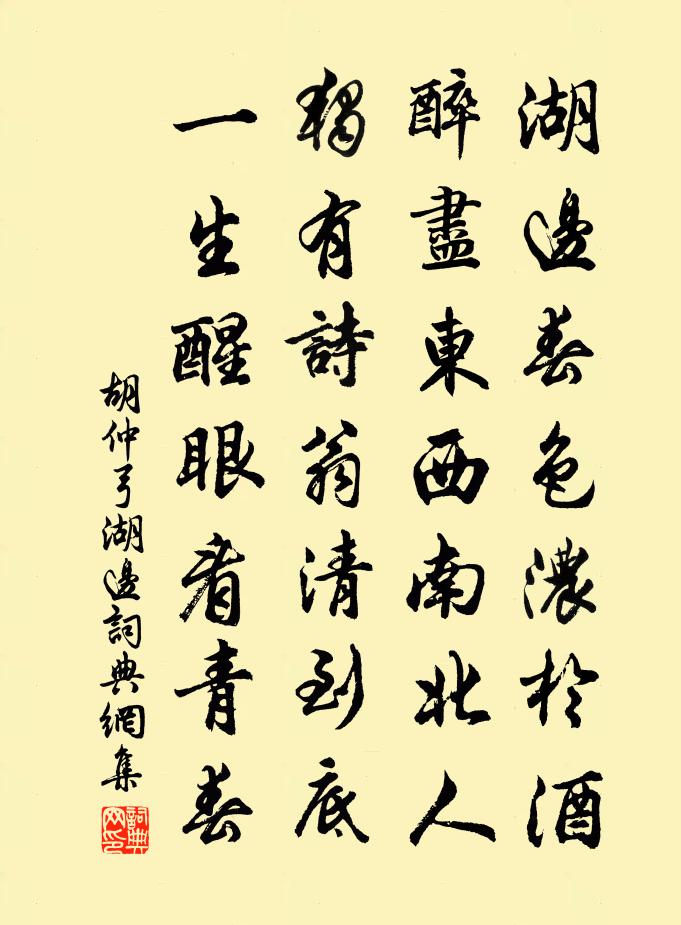 湖邊春色濃於酒
醉盡東西南北人
獨有詩翁清到底
一生醒眼看青春
胡仲弓湖邊詞典網集
詞典網印